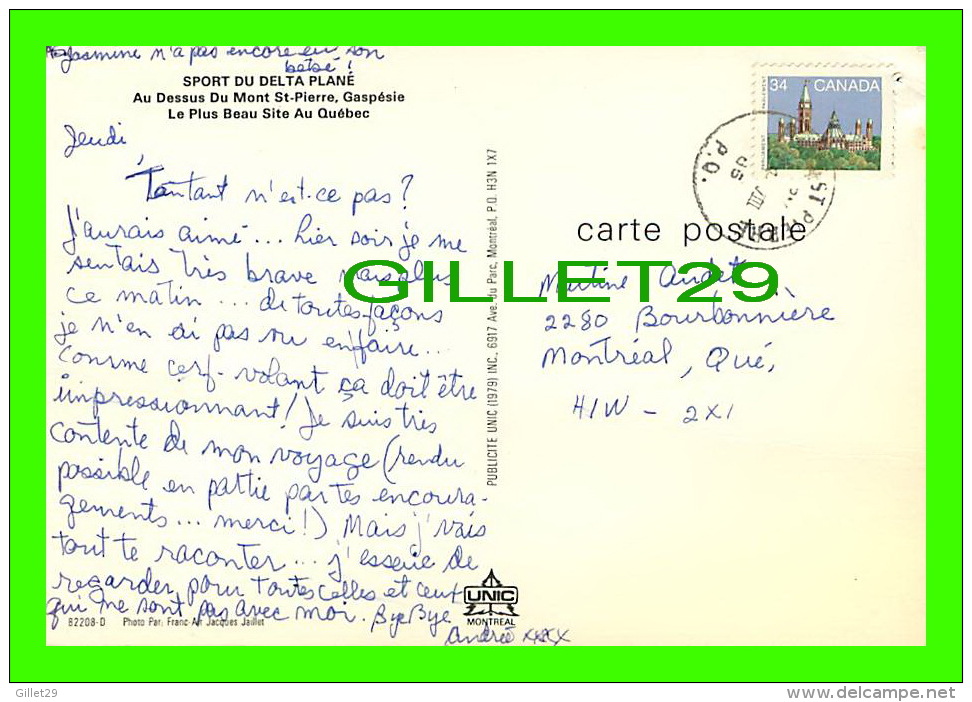 Jasmine n'a pas encore eu son
bébé !
SPORT DU DELTA PLANÉ
Au Dessus Du Mont St-Pierre, Gaspésie
Le Plus Beau Site Au Québec
Jeudi,
Tentant n'est-ce pas?
J'aurais aimé... hier soir je me
sentais très brave mais plus
ce matin... de toutes façons
je n'en ai pas vu en faire...
Comme cerf-volant ça doit être
impressionnant! Je suis très
contente de mon voyage (rendu
possible en partie par tes encoura-
gements... merci!) Mais j'vais
tout te raconter... j'essaie de
regarder pour toutes celles et ceux
qui ne sont pas avec moi. Bye Bye
Andrée xxxx
82208-D Photo Par: Franc-Air Jacques Jaillet
PUBLICITE UNIC (1979) INC., 6917 Ave. du Parc, Montréal, P.Q. H3N 1X7
UNIC
MONTREAL
34 CANADA
PARLEMENT
PARLIAMENT
P.Q.
carte postale
GILLET29
Martine Audet
2280 Bourbonnière
Montréal, Qué,
H1W - 2X1
Gillet29
www.delcampe.net